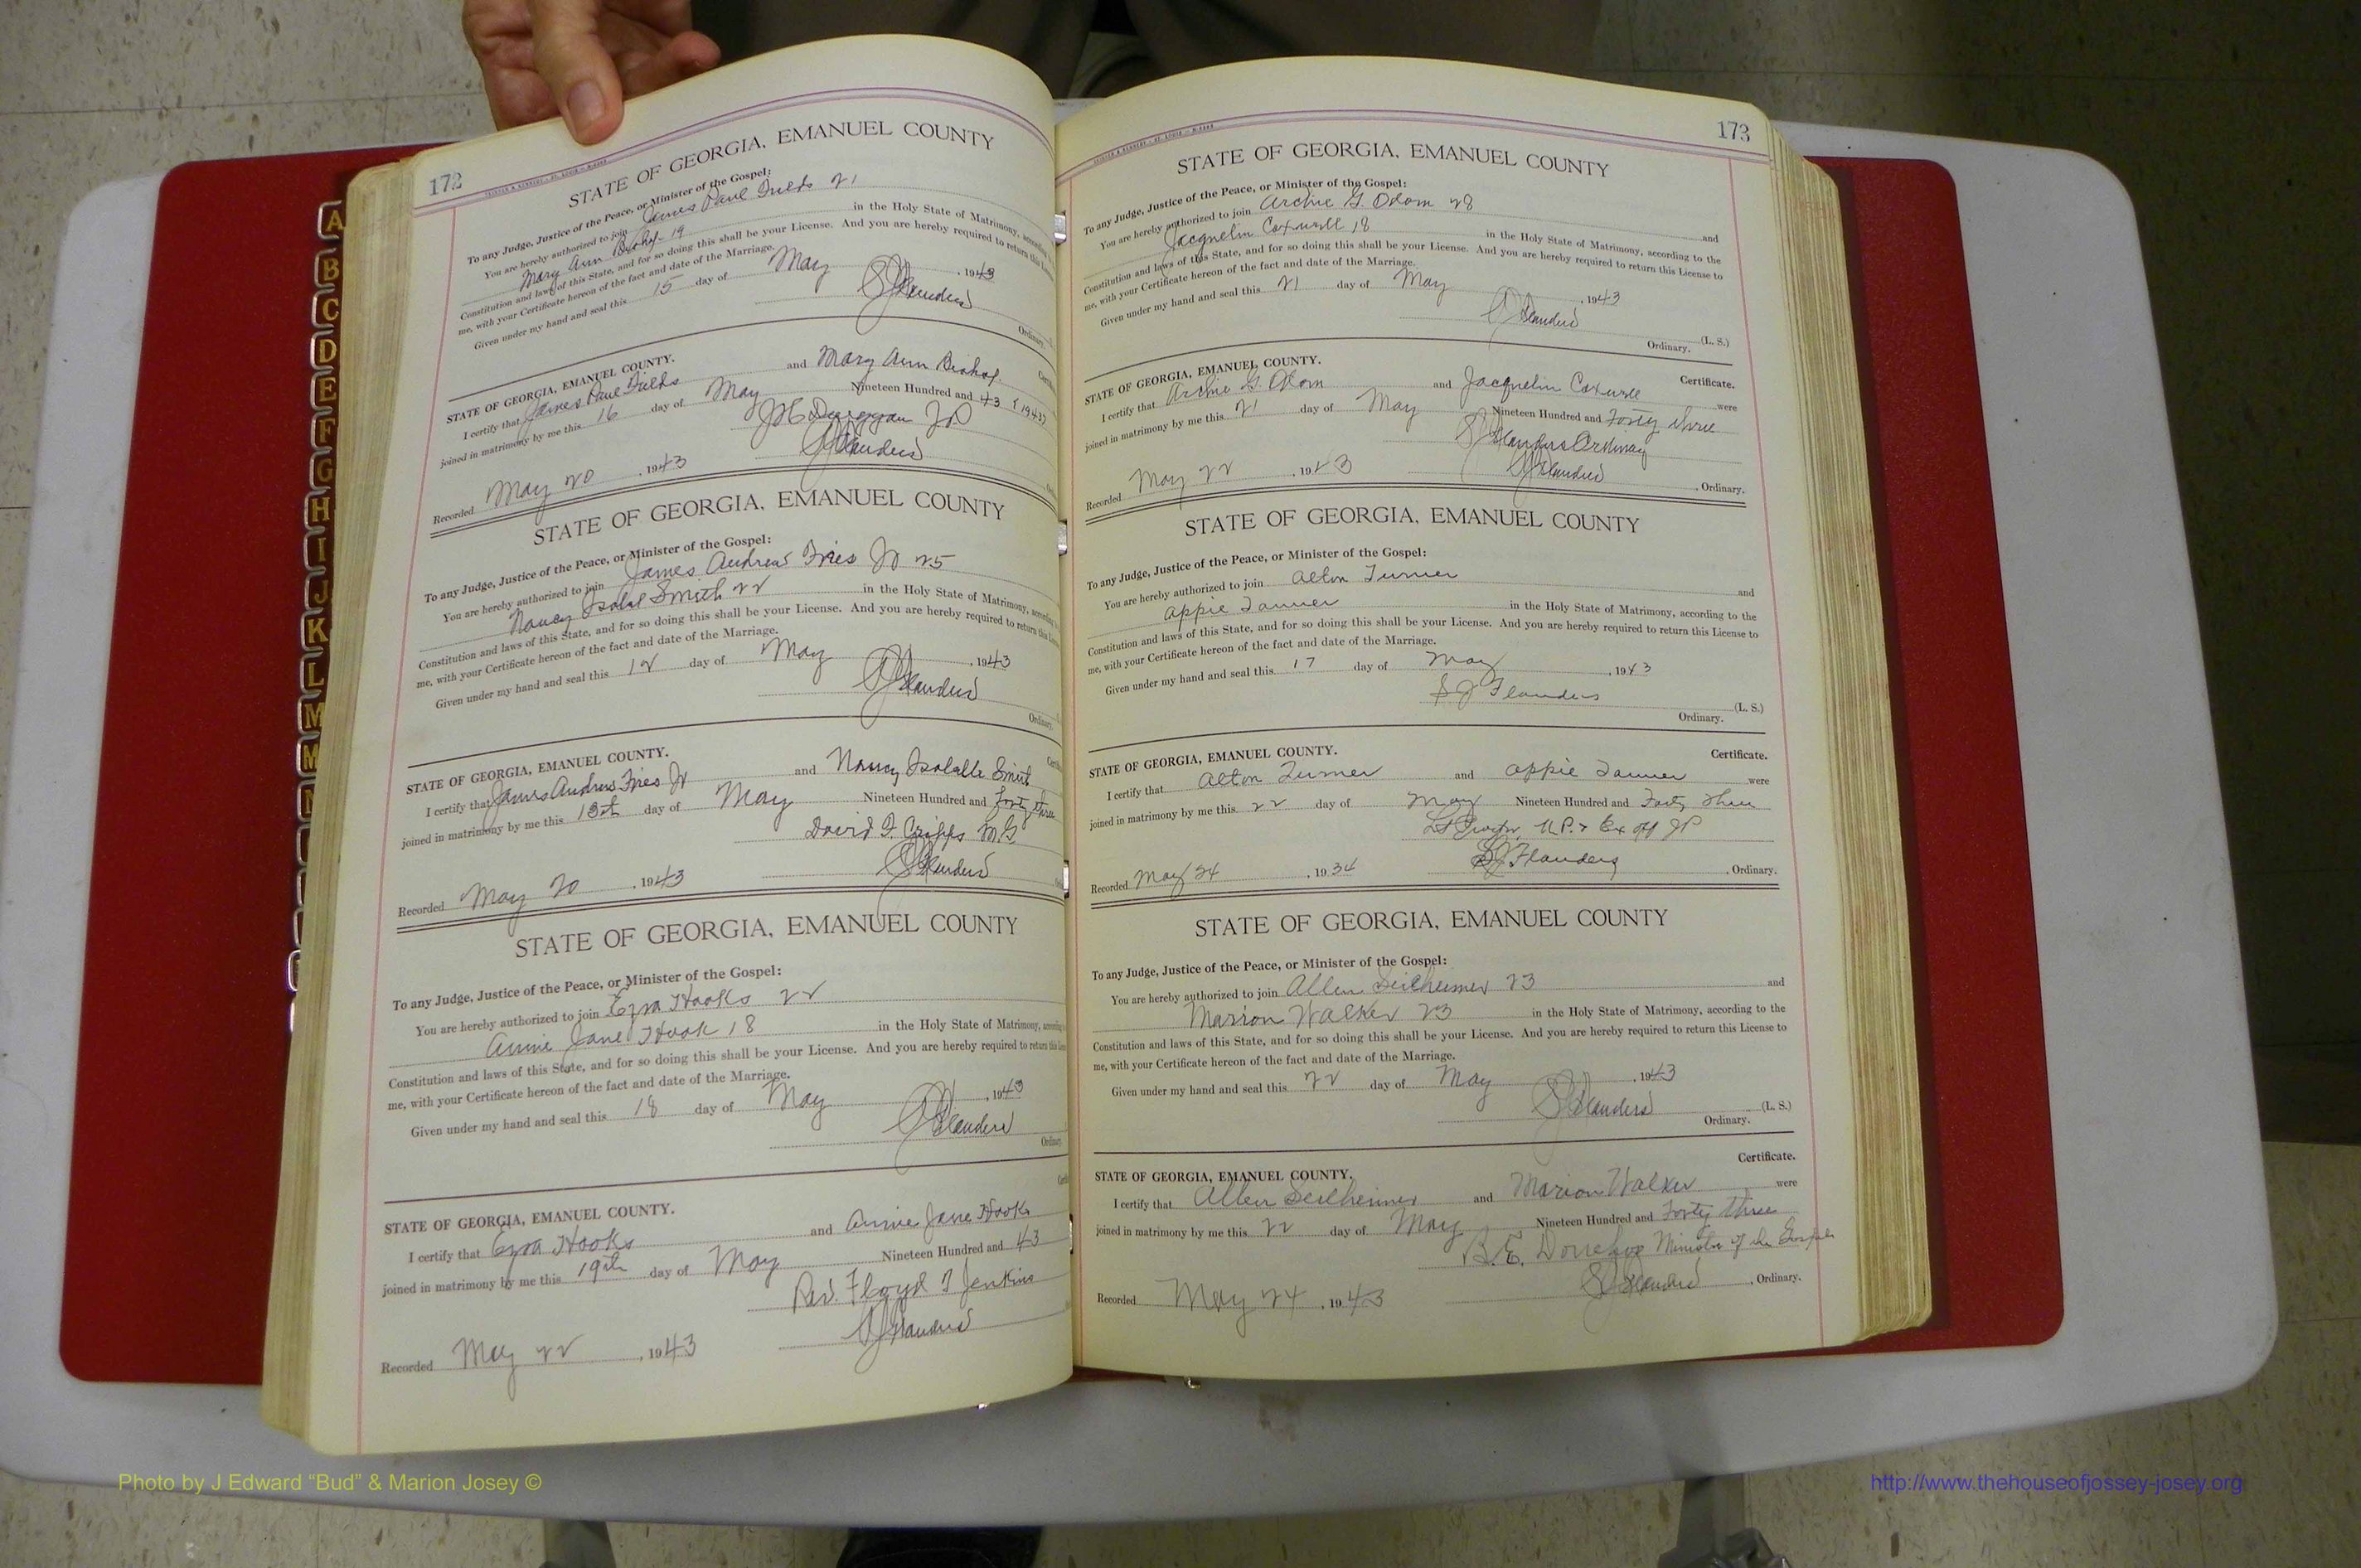 172
STATE OF GEORGIA, EMANUEL COUNTY
To any Judge, Justice of the Peace, or Minister of the Gospel:
You are hereby authorized to join James Paul Fields 21
Mary Ann Bishop 19 in the Holy State of Matrimony,
Constitution and laws of this State, and for so doing this shall be your License. And you are hereby required to return this
me, with your Certificate hereon of the fact and date of the Marriage.
Given under my hand and seal this 15 day of May, 1943
Flanders
Ordinary.
STATE OF GEORGIA, EMANUEL COUNTY.
I certify that James Paul Fields and Mary Ann Bishop
joined in matrimony by me this 16 day of May Nineteen Hundred and 43 (1943)
Flanders
Recorded May 20, 1943
STATE OF GEORGIA, EMANUEL COUNTY
To any Judge, Justice of the Peace, or Minister of the Gospel:
You are hereby authorized to join James Andrew Fries Jr 25
Nancy Smith 22 in the Holy State of Matrimony,
Constitution and laws of this State, and for so doing this shall be your License. And you are hereby required to return this
me, with your Certificate hereon of the fact and date of the Marriage.
Given under my hand and seal this 12 day of May, 1943
Flanders
Ordinary.
STATE OF GEORGIA, EMANUEL COUNTY.
I certify that James Andrew Fries Jr and Nancy Smith
joined in matrimony by me this 13th day of May Nineteen Hundred and forty three
David F. Cripps M.G
Flanders
Recorded May 20, 1943
STATE OF GEORGIA, EMANUEL COUNTY
To any Judge, Justice of the Peace, or Minister of the Gospel:
You are hereby authorized to join Ezra Hooks 22
Annie Jane Hook 18 in the Holy State of Matrimony,
Constitution and laws of this State, and for so doing this shall be your License. And you are hereby required to return this
me, with your Certificate hereon of the fact and date of the Marriage.
Given under my hand and seal this 18 day of May, 1943
Flanders
Ordinary
STATE OF GEORGIA, EMANUEL COUNTY.
I certify that Ezra Hooks and Annie Jane Hooks
joined in matrimony by me this 19th day of May Nineteen Hundred and 43
Rev. Floyd T Jenkins
Flanders
Recorded May 22, 1943
173
STATE OF GEORGIA, EMANUEL COUNTY
To any Judge, Justice of the Peace, or Minister of the Gospel:
You are hereby authorized to join Archie G. Odom 28 and
Jacquelin Coxwell 18 in the Holy State of Matrimony, according to the
Constitution and laws of this State, and for so doing this shall be your License. And you are hereby required to return this License to
me, with your Certificate hereon of the fact and date of the Marriage.
Given under my hand and seal this 21 day of May, 1943
Flanders (L. S.)
Ordinary.
STATE OF GEORGIA, EMANUEL COUNTY. Certificate.
I certify that Archie G. Odom and Jacquelin Coxwell were
joined in matrimony by me this 21 day of May Nineteen Hundred and Forty three
Flanders Ordinary
Recorded May 22, 1943 Flanders, Ordinary.
STATE OF GEORGIA, EMANUEL COUNTY
To any Judge, Justice of the Peace, or Minister of the Gospel:
You are hereby authorized to join Alton Turner and
Appie Tanner in the Holy State of Matrimony, according to the
Constitution and laws of this State, and for so doing this shall be your License. And you are hereby required to return this License to
me, with your Certificate hereon of the fact and date of the Marriage.
Given under my hand and seal this 17 day of May, 1943
S J Flanders (L. S.)
Ordinary.
STATE OF GEORGIA, EMANUEL COUNTY. Certificate.
I certify that Alton Turner and Appie Tanner were
joined in matrimony by me this 22 day of May Nineteen Hundred and Forty three
N.P. & Ex off JP
Recorded May 24, 1934 SJ Flanders, Ordinary.
STATE OF GEORGIA, EMANUEL COUNTY
To any Judge, Justice of the Peace, or Minister of the Gospel:
You are hereby authorized to join Allen Seilheimer 23 and
Marion Walker 23 in the Holy State of Matrimony, according to the
Constitution and laws of this State, and for so doing this shall be your License. And you are hereby required to return this License to
me, with your Certificate hereon of the fact and date of the Marriage.
Given under my hand and seal this 22 day of May, 1943
Flanders (L. S.)
Ordinary.
Certificate.
STATE OF GEORGIA, EMANUEL COUNTY.
I certify that Allen Seilheimer and Marion Walker were
joined in matrimony by me this 22 day of May Nineteen Hundred and Forty three
B.E. Minister of the Gospel
Flanders, Ordinary.
Recorded May 24, 1943
A
B
C
D
E
F
G
H
I
J
K
L
M
Photo by J Edward “Bud” & Marion Josey ©
http://www.thehouseofjossey-josey.org